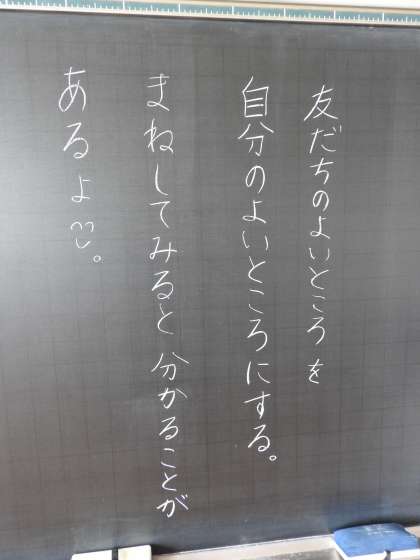 友だちのよいところを
自分のよいところにする。
まねしてみると分かることが
あるよ。